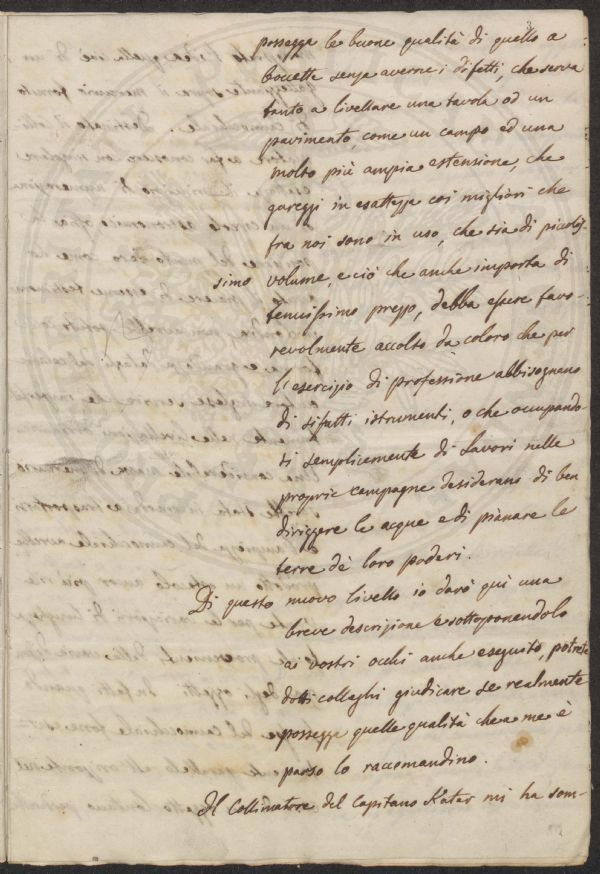 3
possegga le buone qualità di quello a
boccette senza averne i difetti, che serva
tanto a livellare una tavola od un
pavimento, come un campo ed una
molto più ampia estensione, che
gareggi in esattezza coi migliori che
fra noi sono in uso, che sia di picolis-
simo volume, e ciò che anche importa di
tenuissimo prezzo, debba essere favo-
revolmente accolto da coloro che per
l'esercizio di professione abbisognano
di sifatti istrumenti, o che occupando-
si semplicemente di lavori nelle
proprie campagne desiderano di ben
diriggere le acque e di pianare le
terre de' loro poderi.
Di questo nuovo livello io darò quì una
breve descrizione e sottoponendolo
ai vostri occhi anche eseguito, potrete
dotti colleghi giudicare se realmente
possegga quelle qualità che a me è
parso lo raccomandino.
Il Collimatore del Capitano Kater mi ha som-